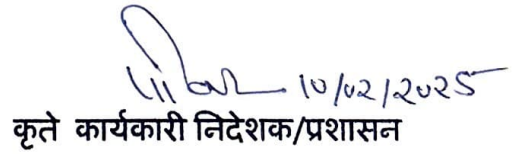 10/02/2025
कृते कार्यकारी निदेशक/प्रशासन